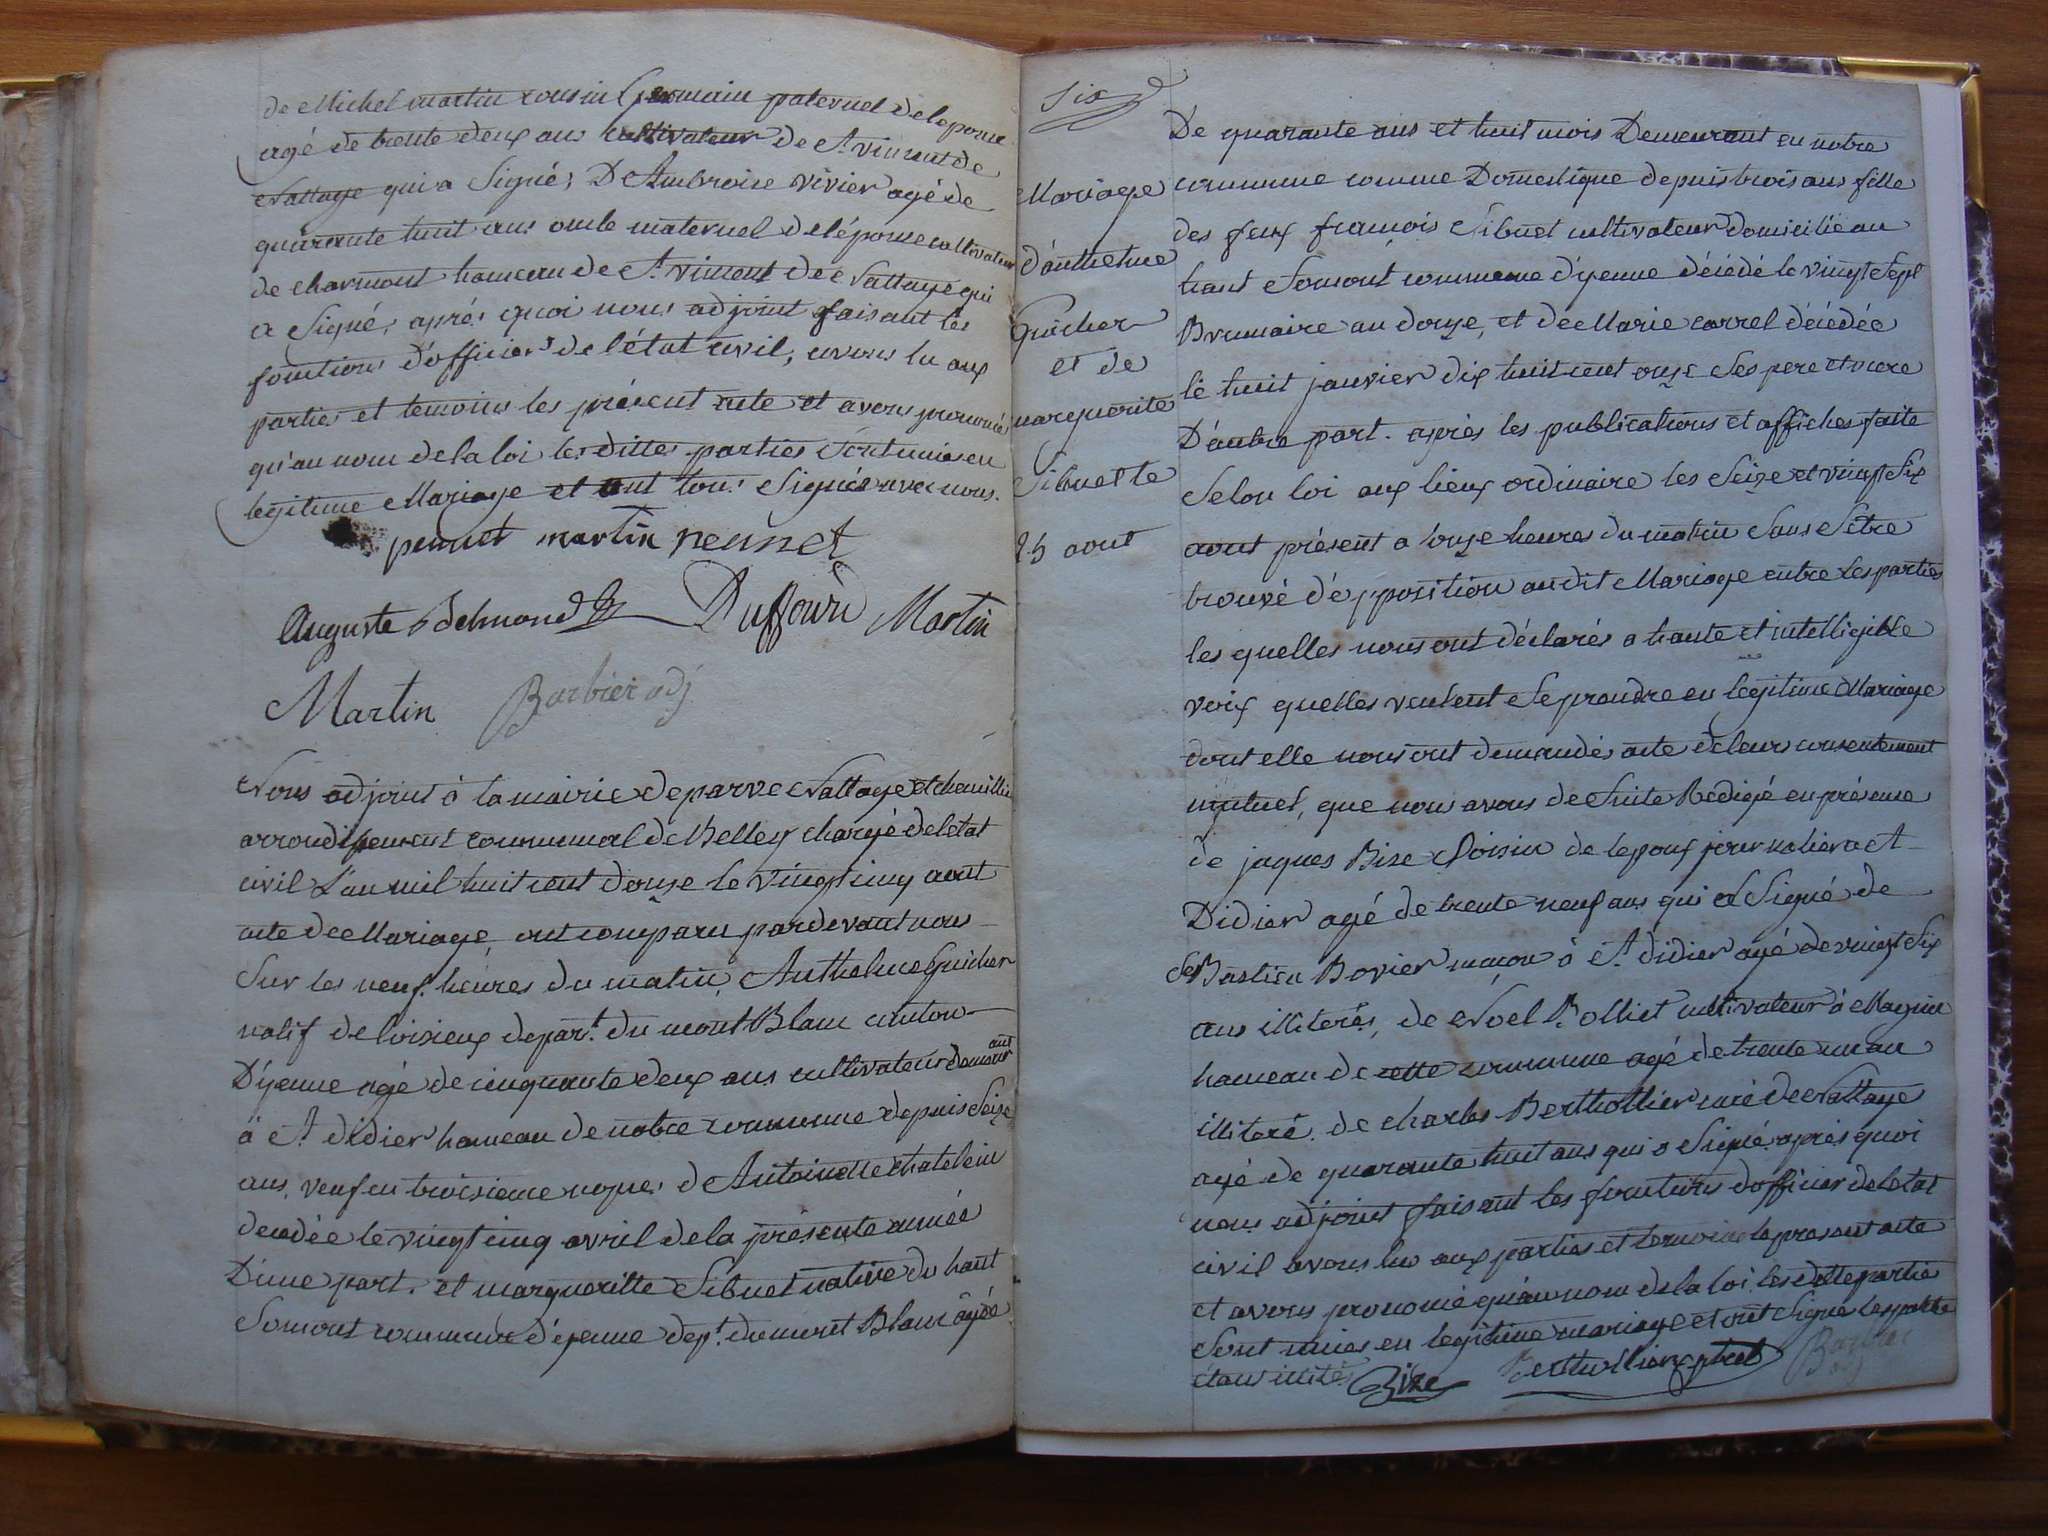 de Michel martin cousin Germain paternel delepouse
agé de trente deux ans cultivateur de St vincent de
Nattage qui a Signé; D'Ambroise vivier agé de
quarante huit ans oncle maternel deléponse cultivateur
de charmont hameau de St. vincent de Nattage qui
a Signé, aprés quoi nous adjoint faisant les
fonctions d'officier de l'état civil, avons lu aux
parties et temoins les présent acte et avons prononcé
qu'au nom de la loi les dittes parties sont unies en
legitime Mariage et ont tous Signés avec nous.
pennet martin pennet
Auguste Belmond Duffourd Martin
Martin Barbier adj
Nous adjoint à la mairie de parve Nattage et chemillieu
arrondissement communal de Belley chargé deletat
civil L'an mil huit cent douze le vingt cinq aout
acte de Mariage, ont comparu pardevant nous
Sur les neuf heures du matin, Anthelme Guicher
natif de loisieux depart. du mont Blanc canton
D'yenne agé de cinquante deux ans cultivateur demeurant
à St. didier hameau de notre commune depuis Seize
ans, veuf en troisieme noces d'Antoinette chatelain
decedée le vingt cinq avril de la présente année
D'une part. et margueritte Sibuet native du haut
Somont commune d'yenne dept. dumont Blanc âgée
Six
Mariage
d'anthelme
Guicher
et de
marguerite
Sibuette
25 aout
De quarante ans et huit mois Demeurant en notre
commune comme Domestique depuis trois ans fille
des feux francois Sibuet cultivateur domicilié au
haut Somont commune d'yenne décédé le vingt Sept
Brumaire an douze, et de Marie carrel décédée
le huit janvier dix huit cent onze Ses pere et mere
D'autre part. après les publications et affiches faite
Selon loi aux lieux ordinaire les Seize et vingt Six
aout présent a onze heures du matin Sans Sètre
trouvé d'épposition audit Mariage entre Les parties
les quelles nous ont déclarés a haute et intelligible
voix quelles veulent Se prendre en legitime Mariage
dont elle nous ont demandés acte deleur consentement
mutuel, que nous avons de Suite Redigé en présence
de jaques Bize Voisin de lepoux journalier a St
Didier agé de trente neuf ans qui a Signé de
Sebastien Bovier maçon à St. didier agé de vingt Six
ans illiterés, de Noel Bolliet cultivateur à Magnin
hameau de cette commune agé de trente un an
illiteré. de charles Berthollier curé de Nattage
agé de quarante huit ans qui a Signé. après quoi
nous adjoint faisant les fonctions d'officier deletat
civil avons lu aux parties et temoins le present acte
et avons prononcé qu'au nom de la loi. les ditte partie
Sont unies en legitime mariage et ont Signé les parties
étant illités Bize Berthollier Barbier